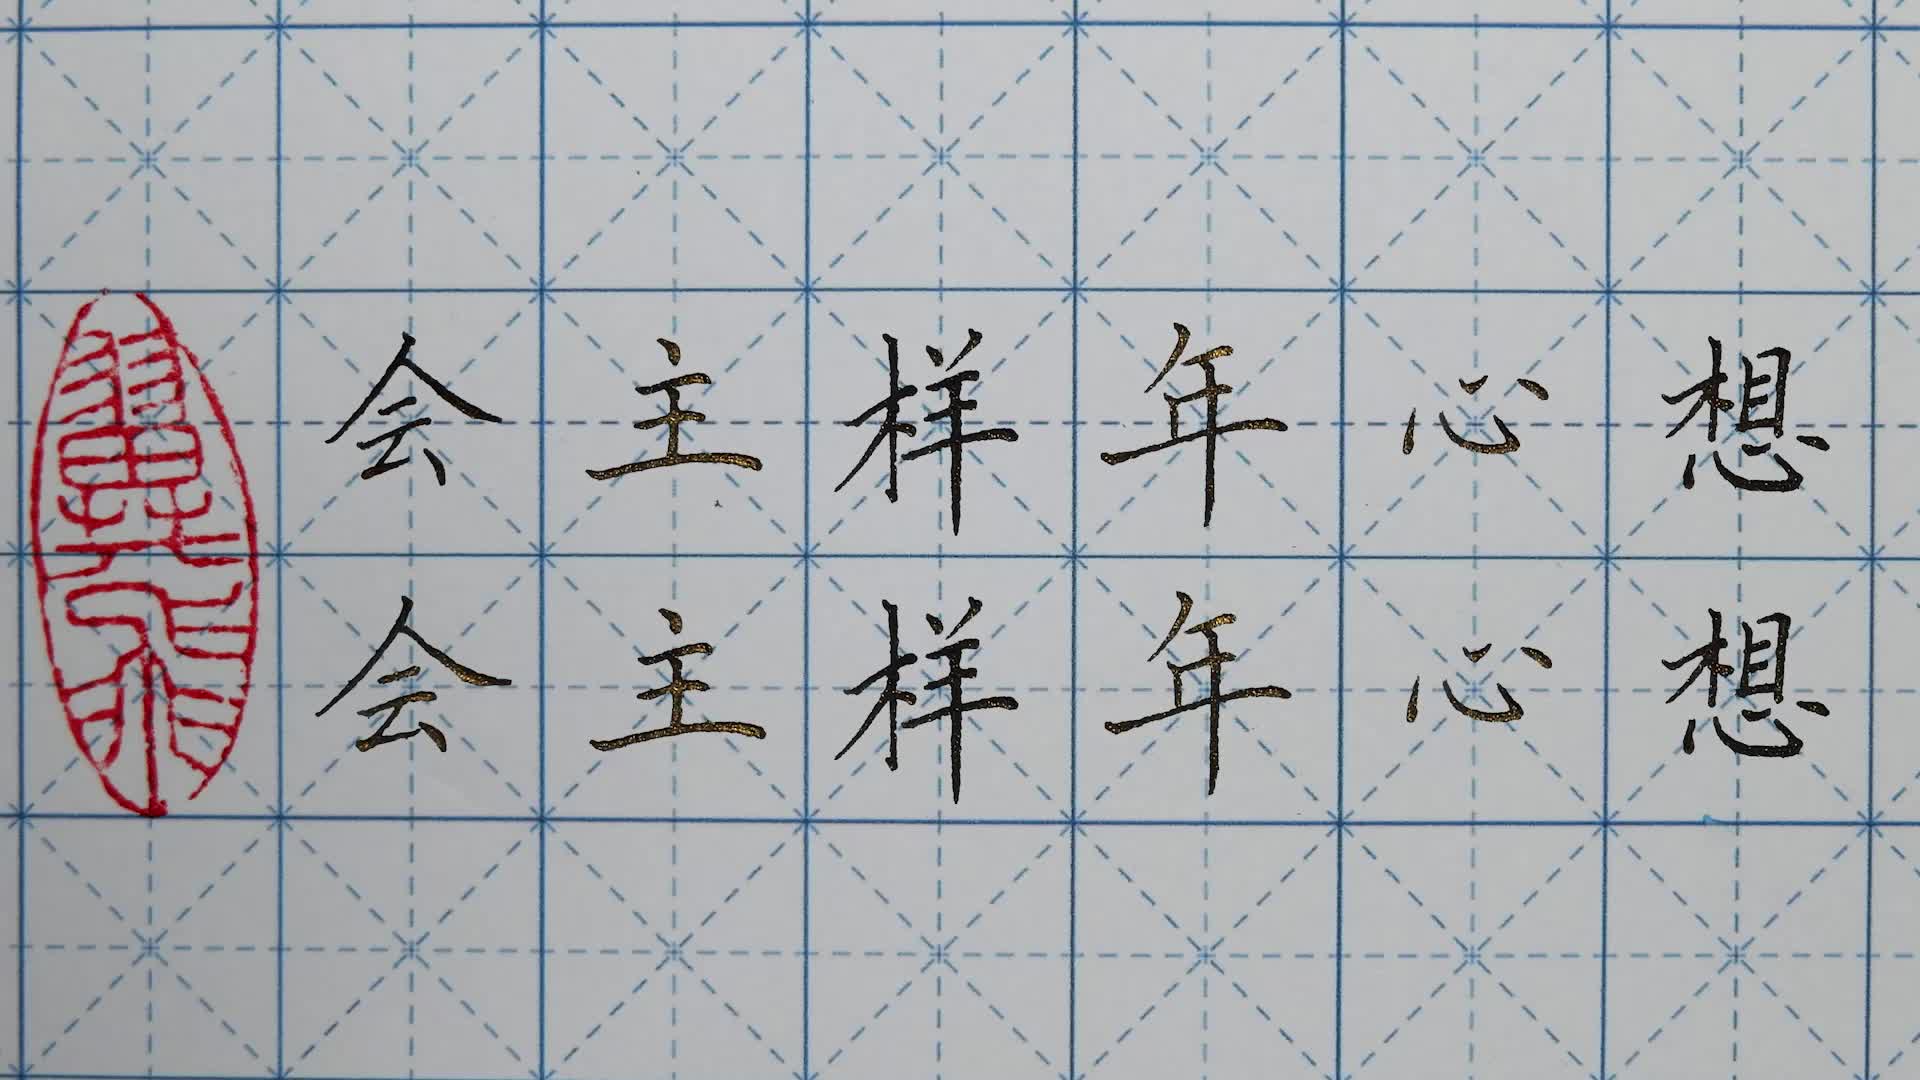 会主样年心想
会主样年心想